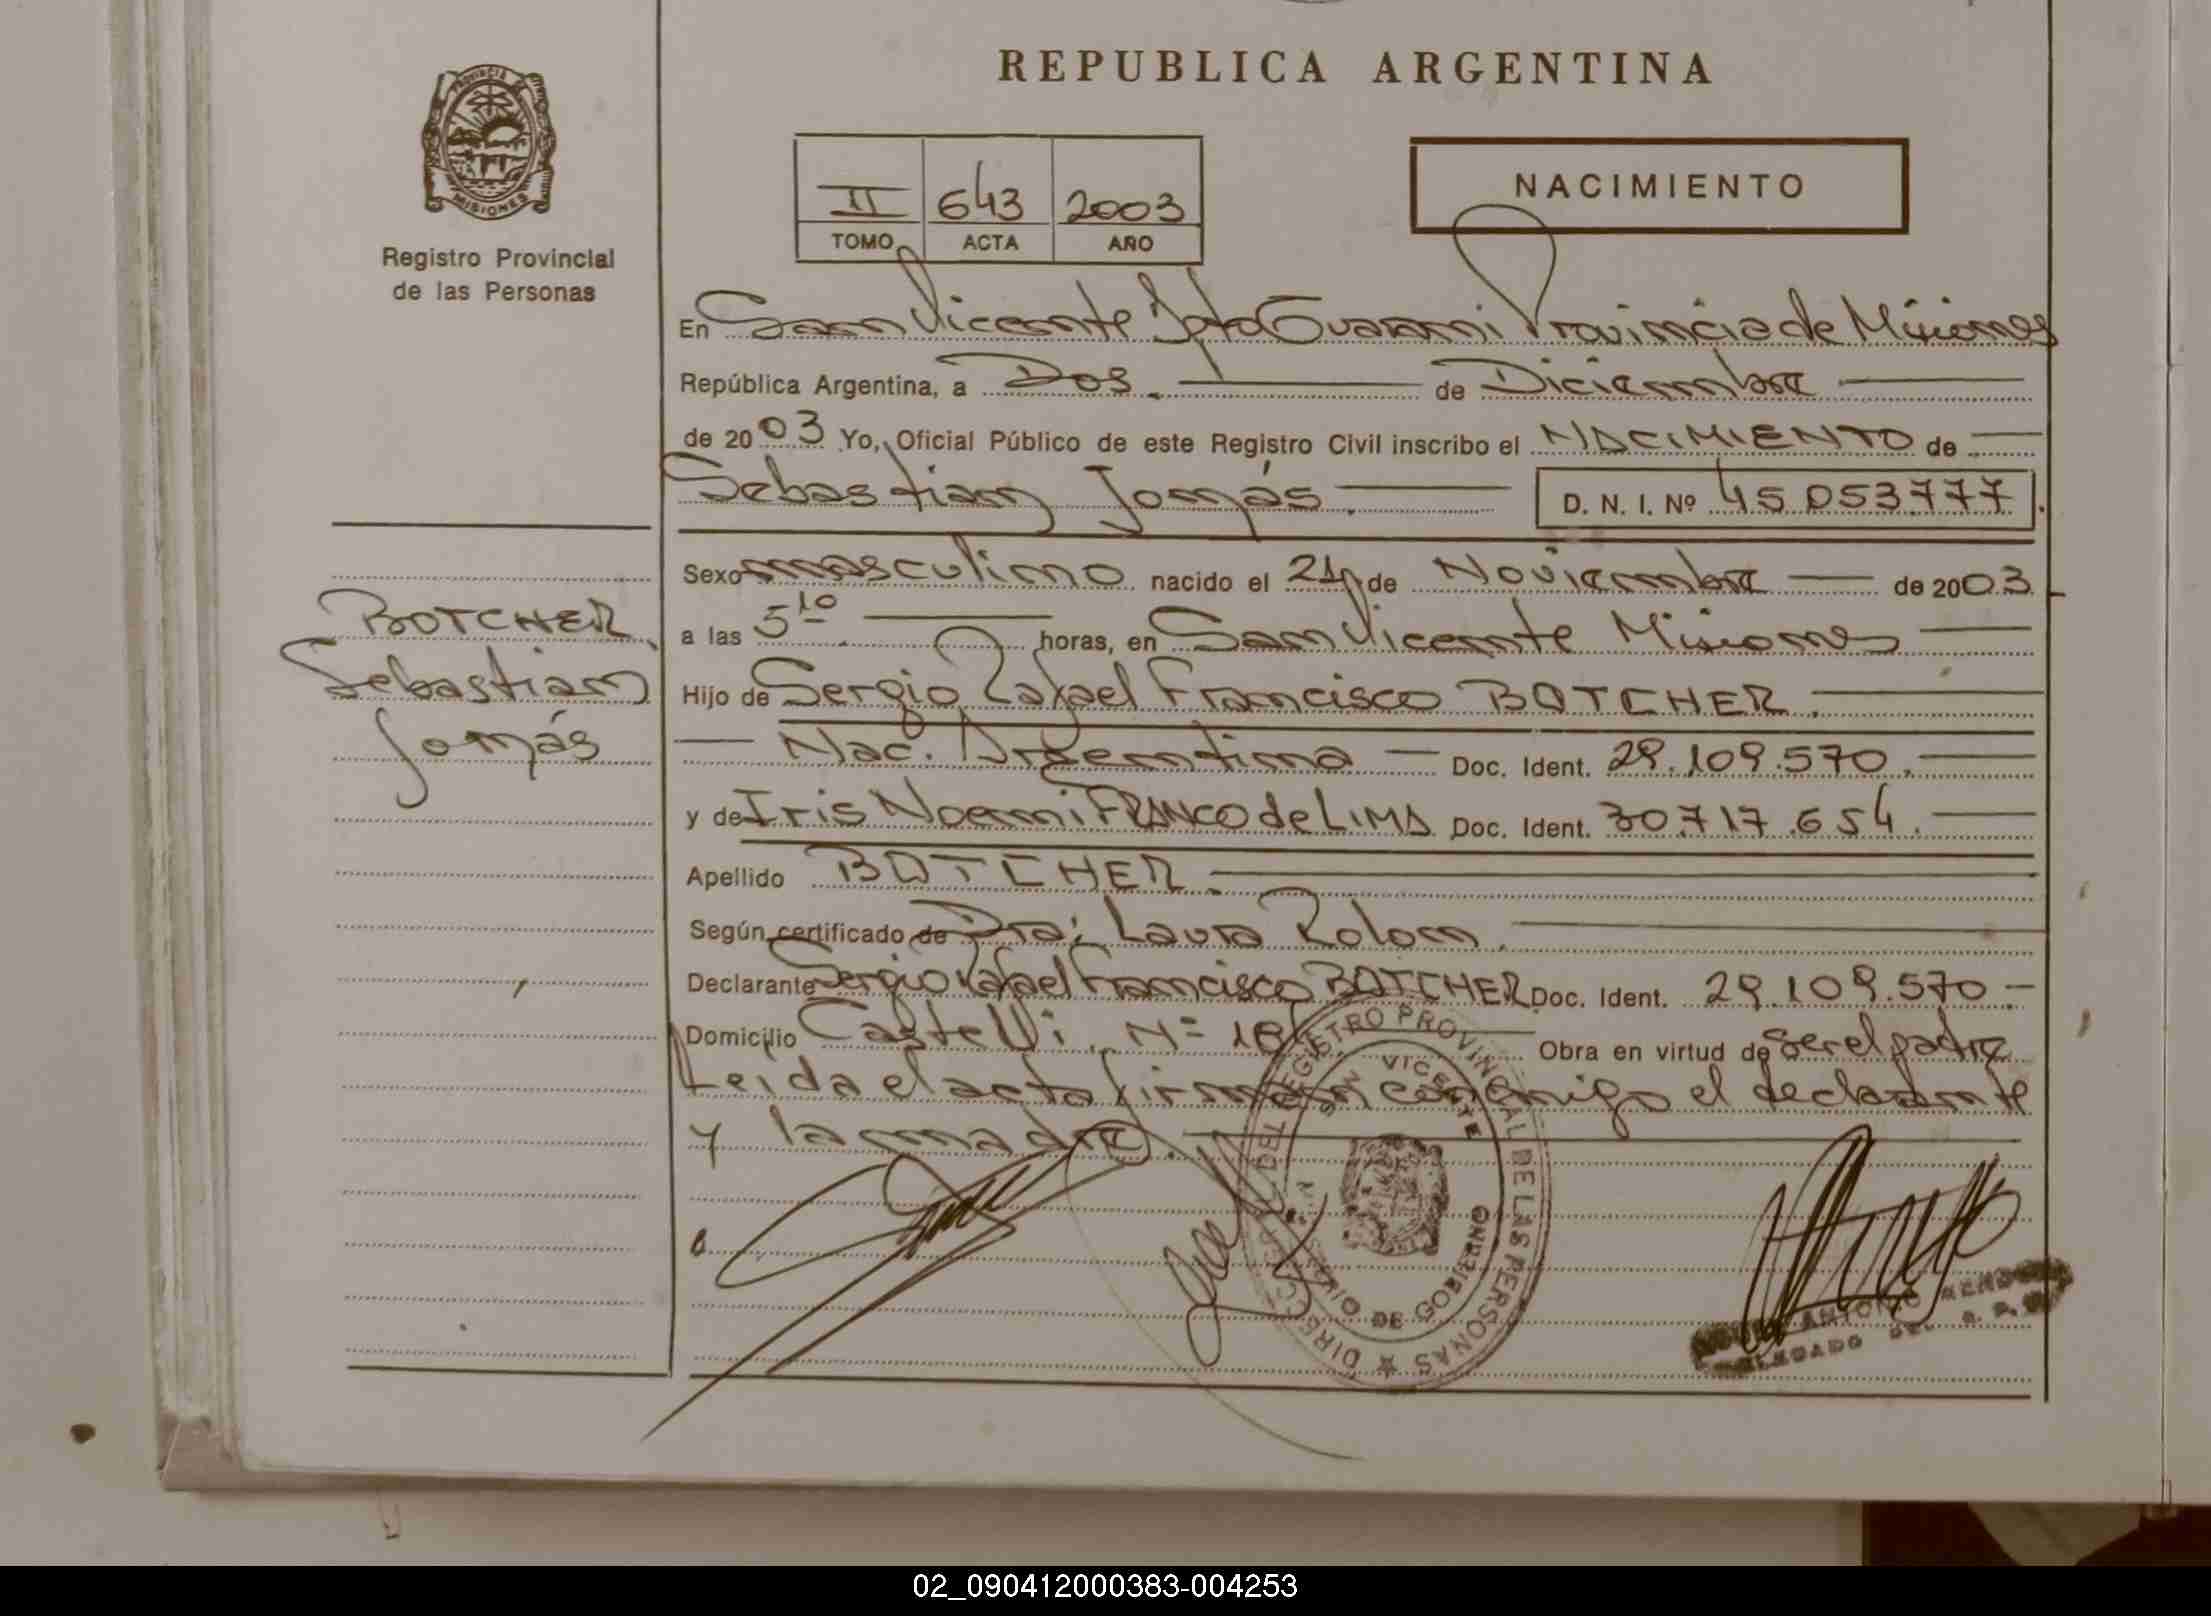 REPUBLICA ARGENTINA
PROVINCIA DE MISIONES
Registro Provincial
de las Personas
II 643 2003
TOMO ACTA AÑO
NACIMIENTO
En San Vicente Dpto Guarani Provincia de Misiones
República Argentina, a Dos. de Diciembre
de 2003 Yo, Oficial Público de este Registro Civil inscribo el NACIMIENTO de
Sebastian Tomás. D. N. I. Nº 45.053.777.
BOTCHER
Sebastian
Tomás
Sexo masculino nacido el de Noviembre de 2003
a las 5 10 horas, en San Vicente Misiones
Hijo de Sergio Rafael Francisco BOTCHER.
Nac. Argentina Doc. Ident. 29.109.570.
y de Iris Noemi FRANCO de LIMA Doc. Ident. 30.717.654.
Apellido BOTCHER.
Según certificado de Dra: Laura Rolon.
Declarante Sergio Rafael Francisco BOTCHER Doc. Ident. 29.109.570.-
Domicilio Castelli Nº Obra en virtud de ser el padre
Leida el acta firman conmigo el declarante
y la madre.
DIRECCION DEL REGISTRO PROVINCIAL DE LAS PERSONAS
SAN VICENTE
MISIONES
ANTONIO
DELEGADO DEL R. P.
02_090412000383-004253